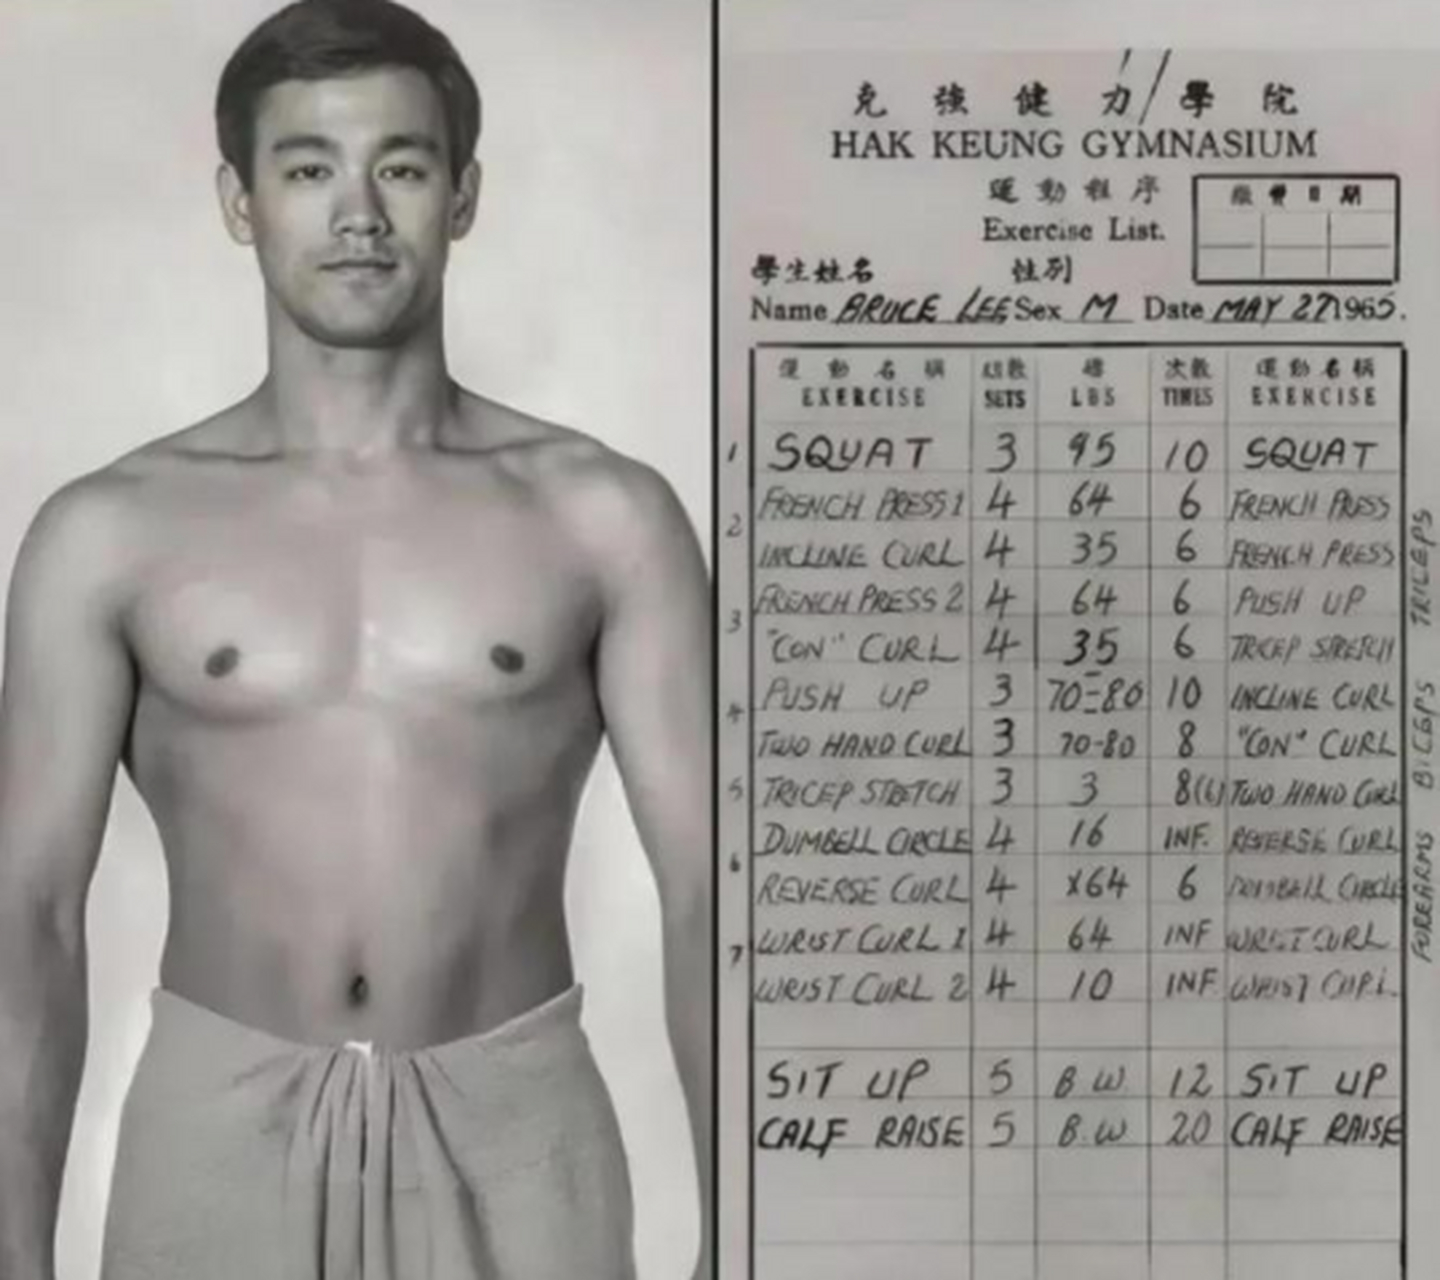 克強健力學院
HAK KEUNG GYMNASIUM
運動程序
Exercise List.
繳費日期
學生姓名 性別
Name BRUCE LEE Sex M Date MAY 27 1965.
運動名稱 組數 磅 次數 運動名稱
EXERCISE SETS LBS TIMES EXERCISE
1 SQUAT 3 95 10 SQUAT
FRENCH PRESS 1 4 64 6 FRENCH PRESS
2
INCLINE CURL 4 35 6 FRENCH PRESS
FRENCH PRESS 2 4 64 6 PUSH UP
3
"CON" CURL 4 35 6 TRICEP STRETCH
PUSH UP 3 70-80 10 INCLINE CURL
4
TWO HAND CURL 3 70-80 8 "CON" CURL
5 TRICEP STRETCH 3 3 8(6) TWO HAND CURL
DUMBELL CIRCLE 4 16 INF. REVERSE CURL
6
REVERSE CURL 4 x64 6 DUMBELL CIRCLE
WRIST CURL 1 4 64 INF WRIST CURL
7
WRIST CURL 2 4 10 INF WRIST CURL
SIT UP 5 B.W. 12 SIT UP
CALF RAISE 5 B.W 20 CALF RAISE
TRICEPS
BICEPS
FOREARMS